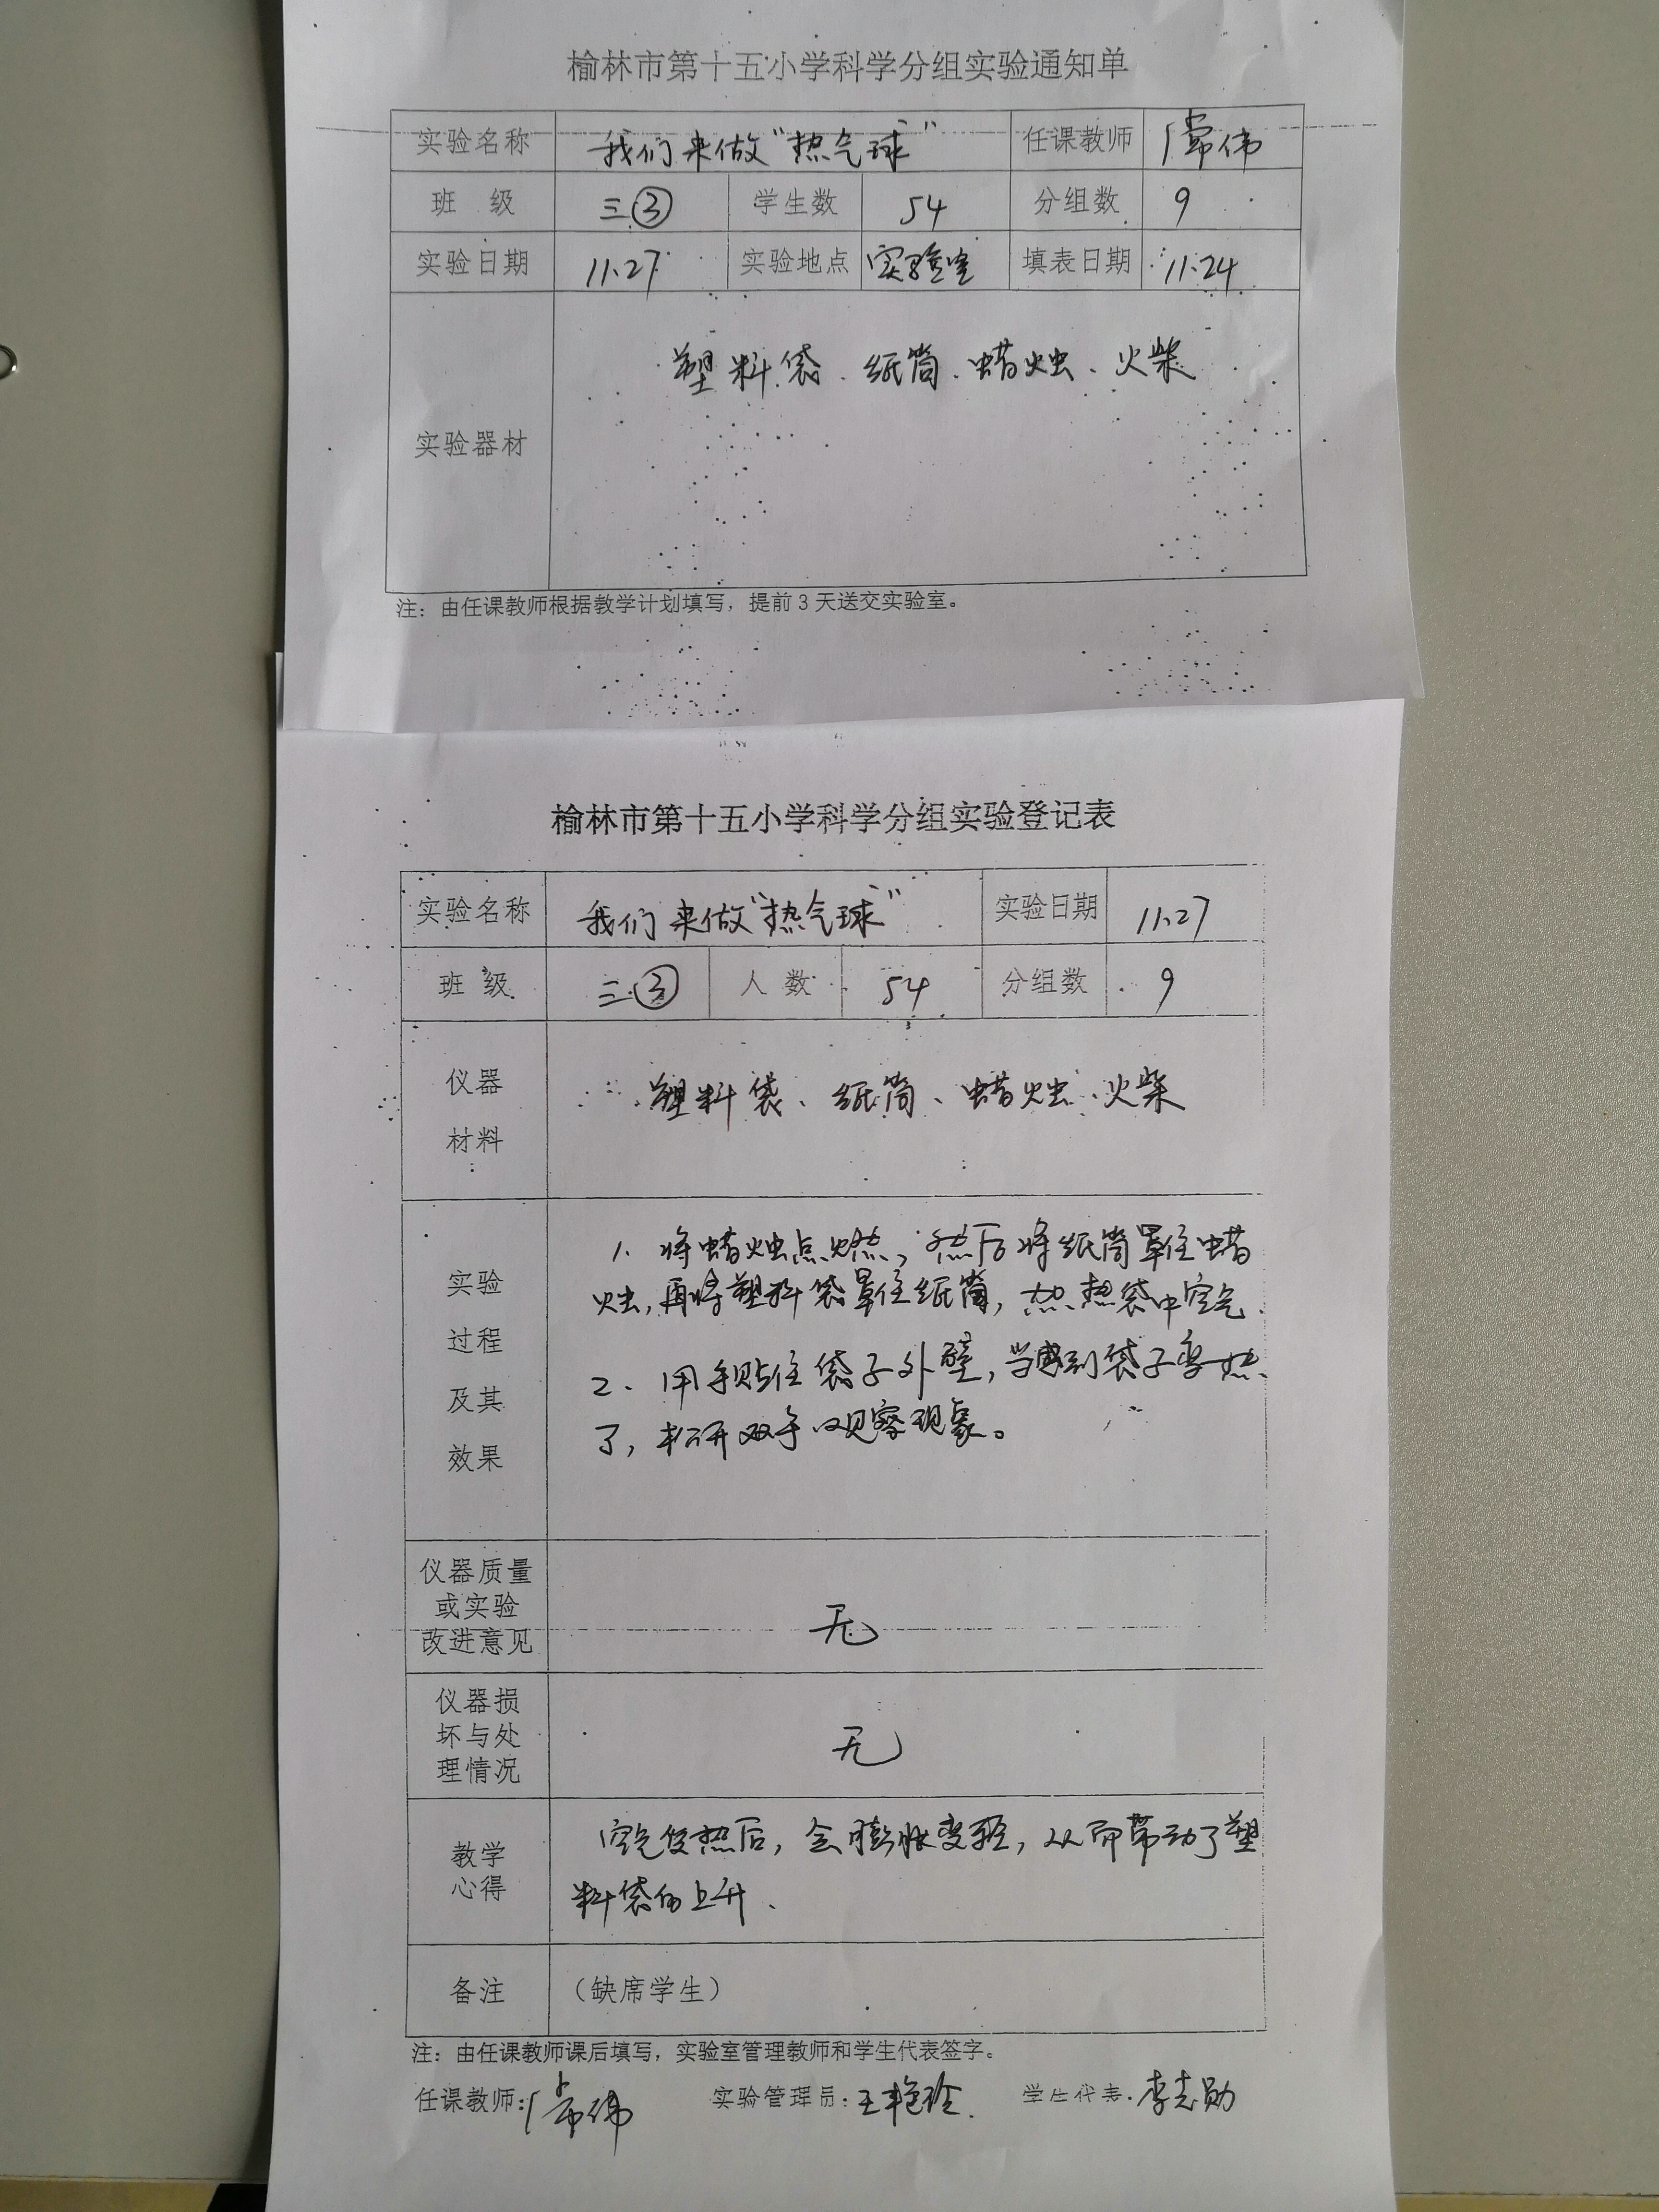 榆林市第十五小学科学分组实验通知单
实验名称 我们来做“热气球” 任课教师 常伟
班 级 三③ 学生数 54 分组数 9
实验日期 11.27 实验地点 实验室 填表日期 11.24
实验器材 塑料袋、纸筒、蜡烛、火柴
注：由任课教师根据教学计划填写，提前3天送交实验室。
榆林市第十五小学科学分组实验登记表
实验名称 我们来做“热气球” 实验日期 11.27
班 级 三③ 人 数 54 分组数 9
仪器
材料
塑料袋、纸筒、蜡烛、火柴
实验
过程
及其
效果
1、将蜡烛点燃，然后将纸筒罩住蜡
烛，再将塑料袋罩住纸筒，加热袋中空气.
2、用手贴住袋子外壁，当感到袋子变热
了，松开双手观察现象。
仪器质量
或实验
改进意见
无
仪器损
坏与处
理情况
无
教学
心得
空气受热后，会膨胀变轻，从而带动了塑
料袋的上升.
备注 （缺席学生）
注：由任课教师课后填写，实验室管理教师和学生代表签字。
任课教师：常伟 实验管理员：王艳玲 学生代表：李志勋